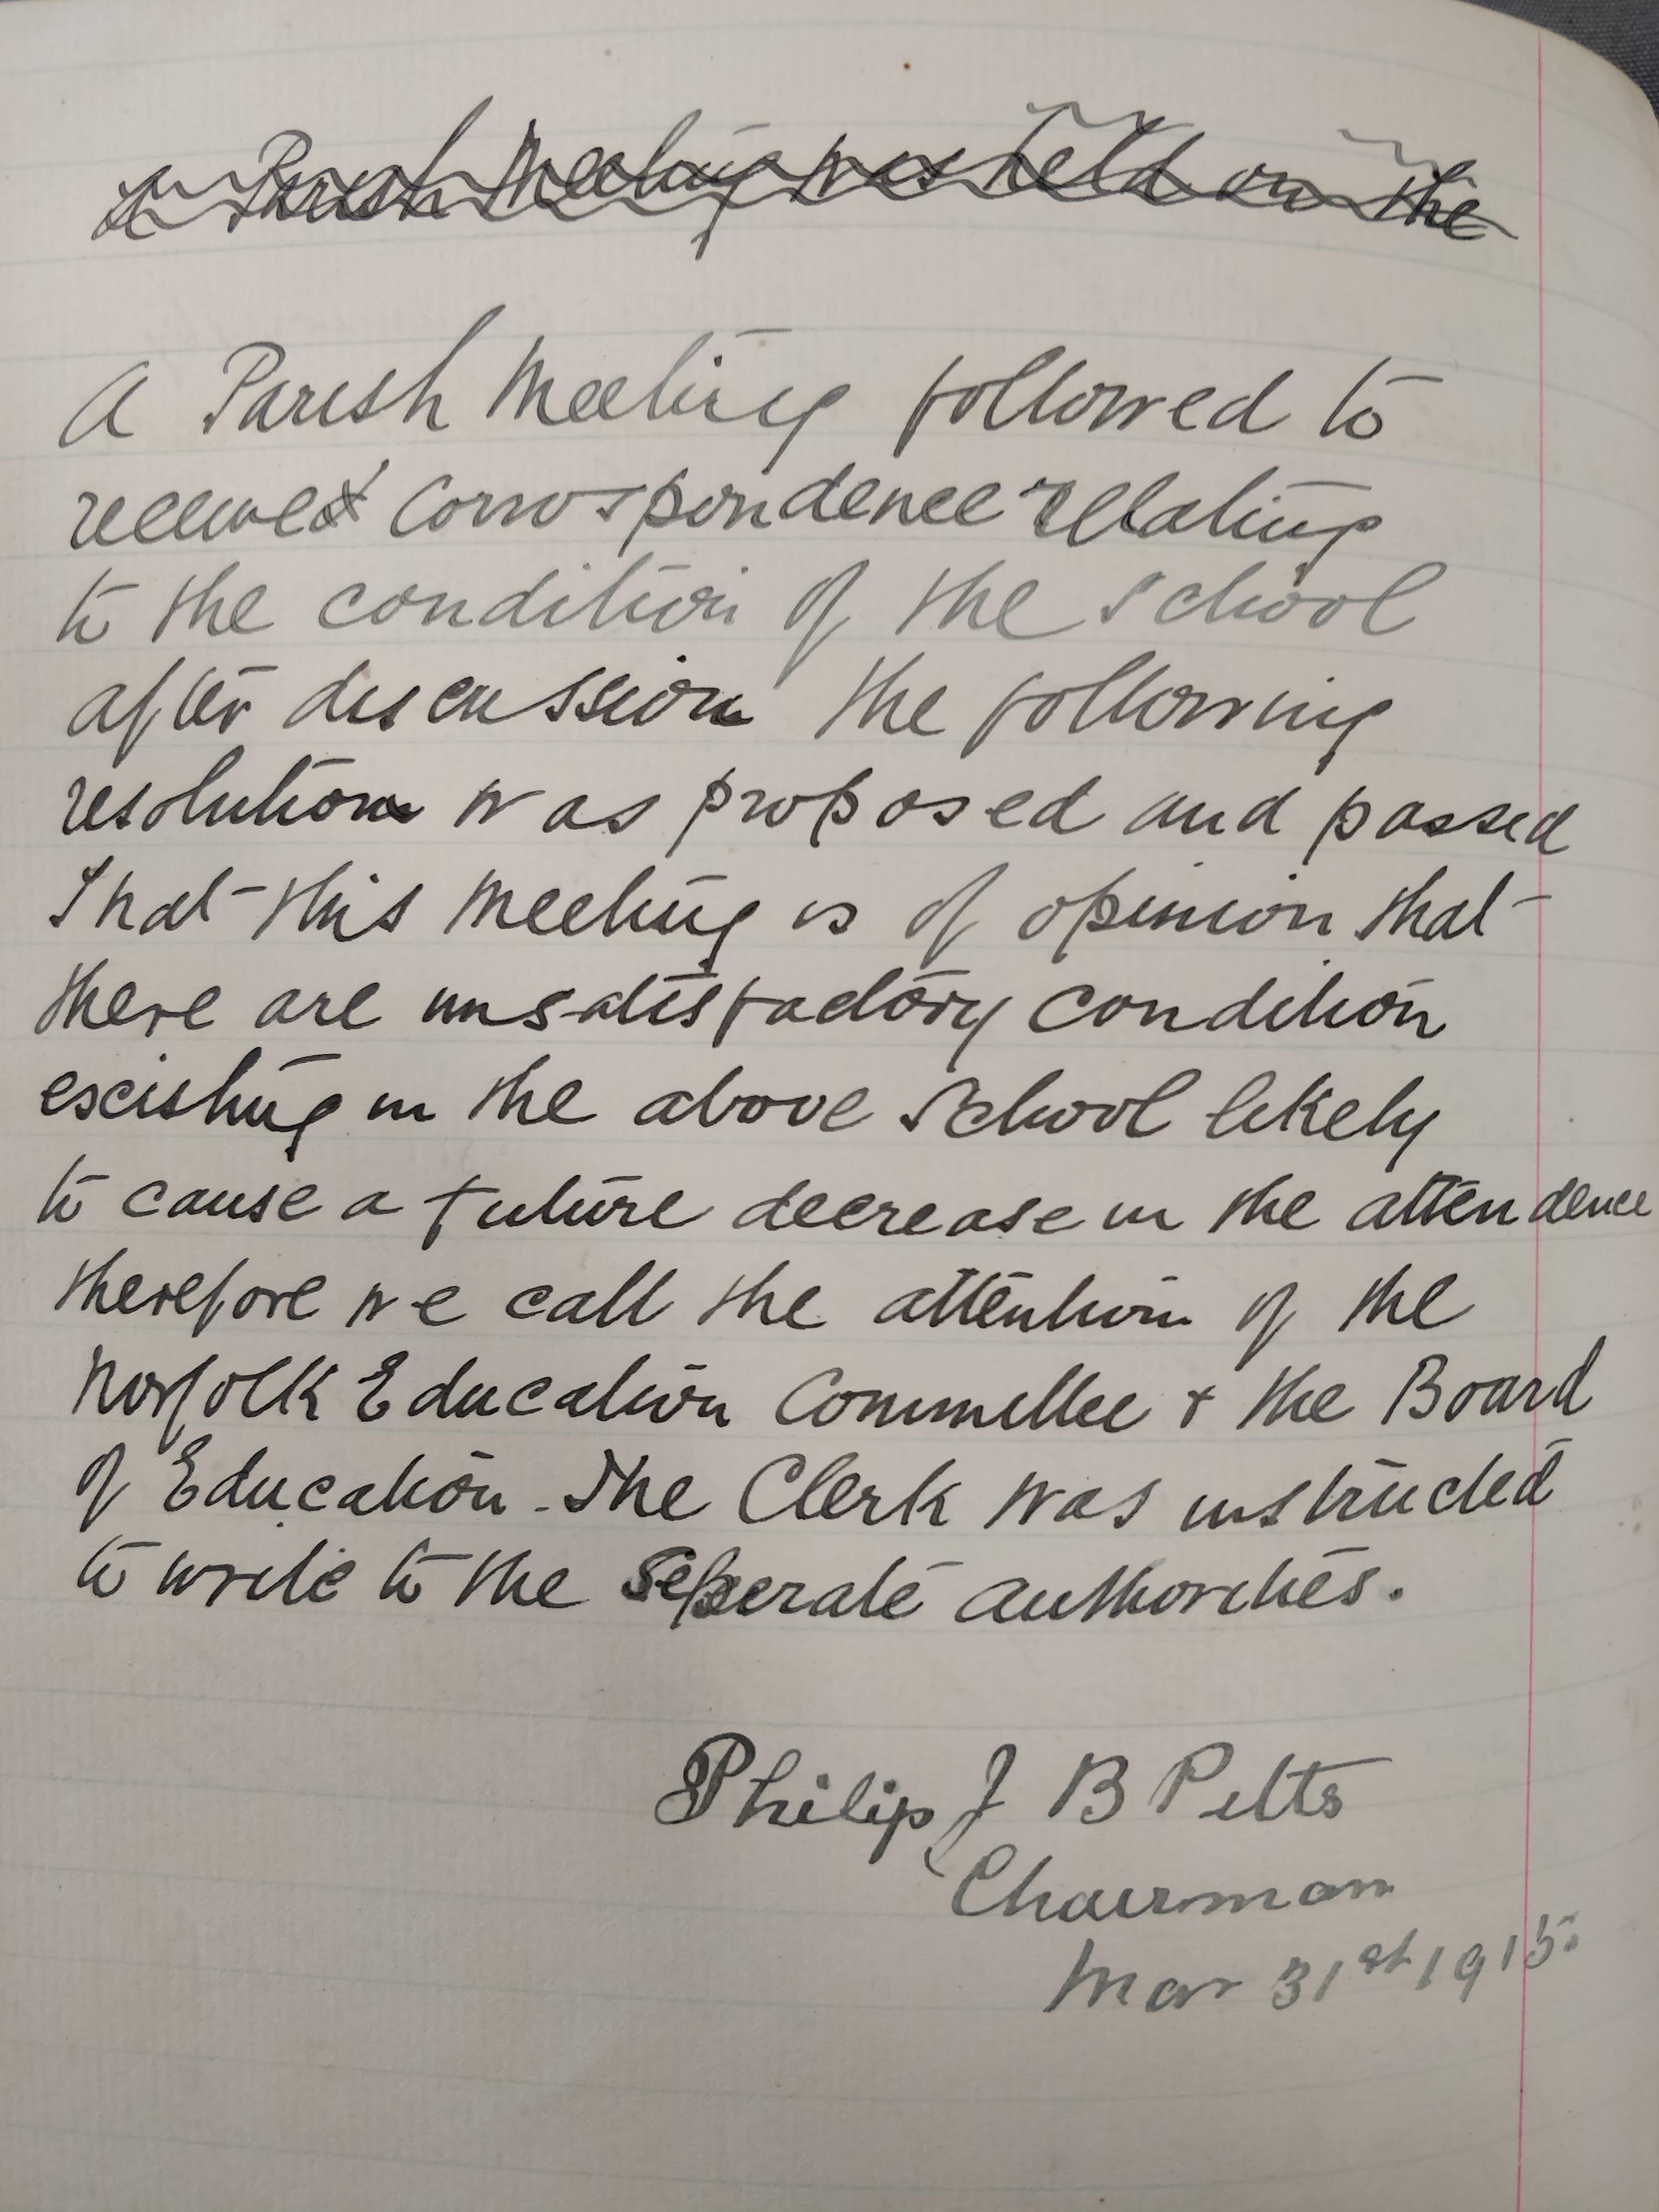 A Parish Meeting was held on the
A Parish Meeting followed to
receive correspondence relating
to the condition of the School
after discussion the following
resolution was proposed and passed
That this Meeting is of opinion that
there are unsatisfactory condition
excisting in the above School likely
to cause a future decrease in the attendence
therefore we call the attention of the
Norfolk Education Committee + the Board
of Education - The Clerk was instructed
to write to the seperate authorities.
Philip J B Pitts
Chairman
Mar 31st 1915.